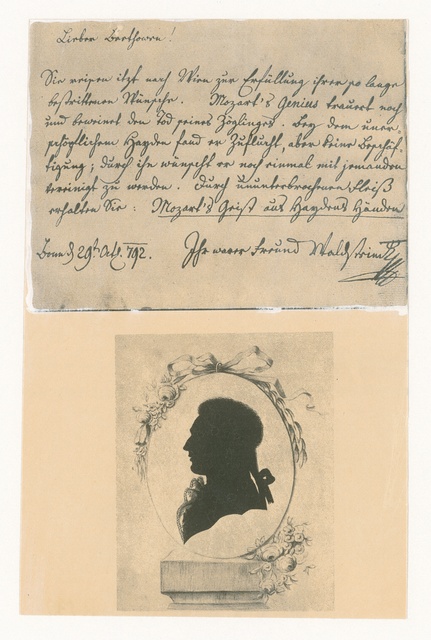 Lieber Beethowen!
Sie reisen itzt nach Wien zur Erfüllung ihrer so lange
bestrittenen Wünsche. Mozart's Genius trauert noch
und beweinet den Tod seines Zöglinges. Bey dem uner-
schöpflichem Hayden fand er Zuflucht, aber keine Beschäf-
tigung; durch ihn wünscht er noch einmal mit jemanden
vereinigt zu werden. Durch ununterbrochenen Fleiß
erhalten Sie: Mozart's Geist aus Haydens Händen
Bonn d 29t. Oct. 792. Ihr warer Freund Waldstein